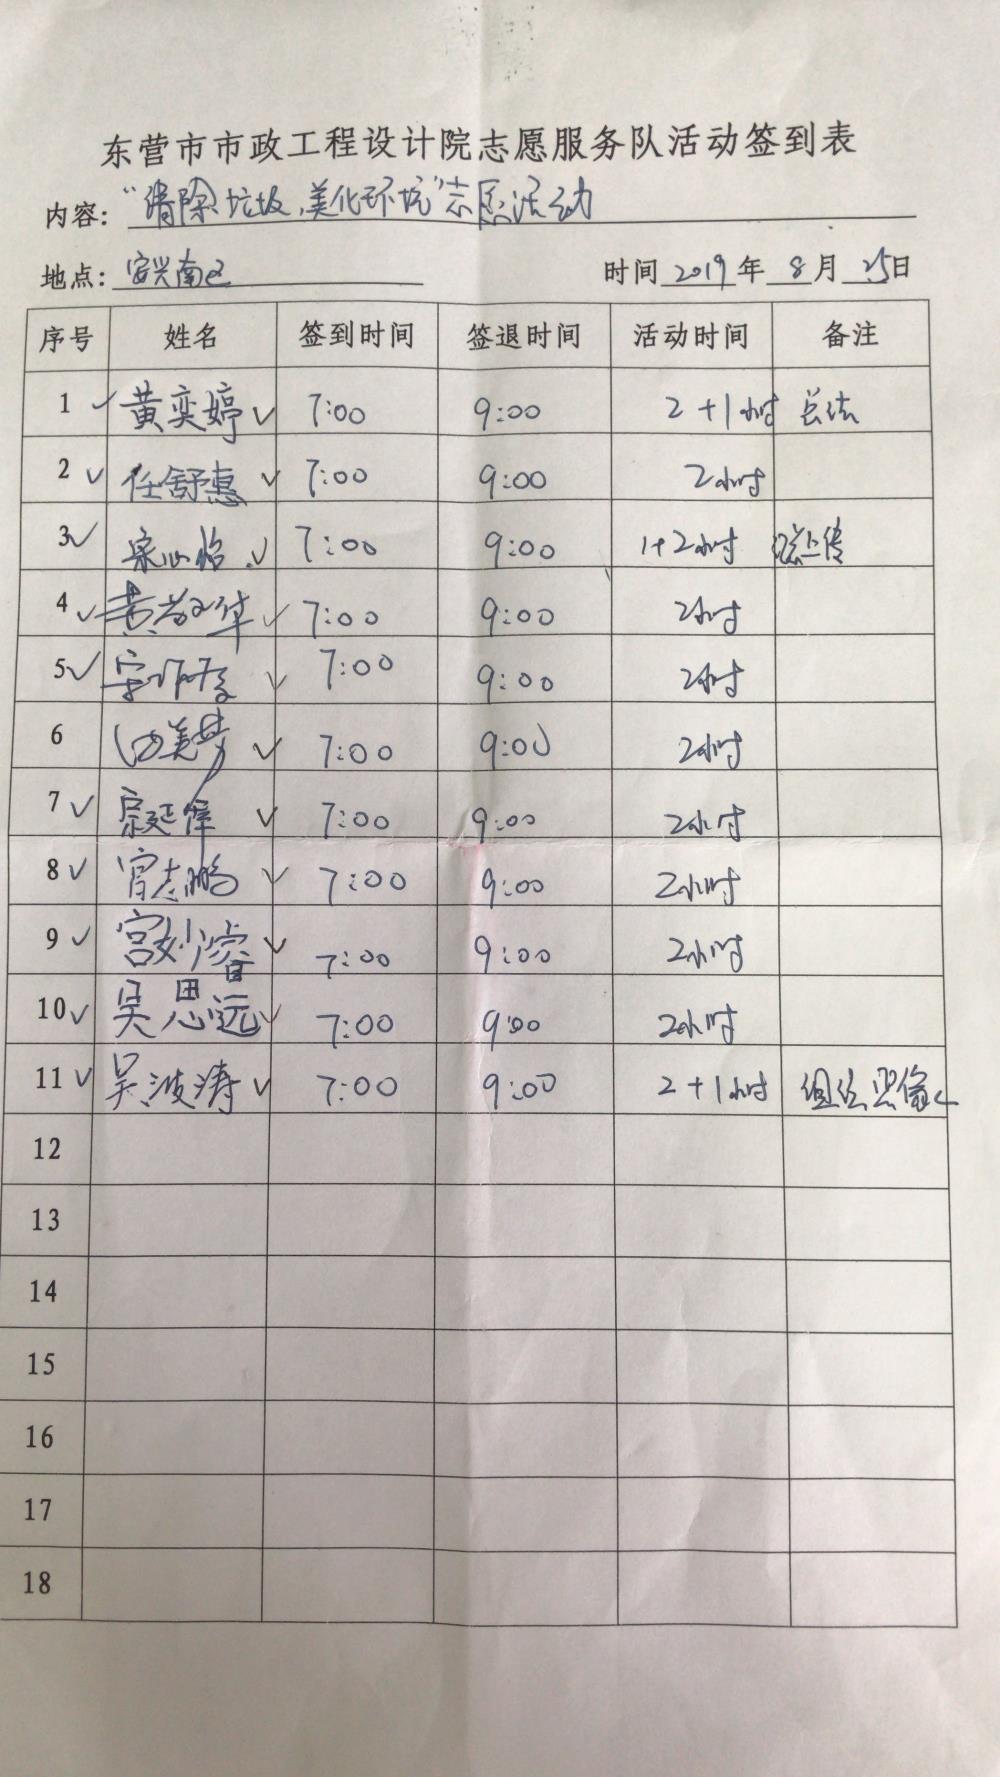 东营市市政工程设计院志愿服务队活动签到表
内容: "清除垃圾,美化环境"志愿活动
地点: 安兴南区 时间 2019 年 8 月 25 日
序号 姓名 签到时间 签退时间 活动时间 备注
1 ✓ 黄奕婷 ✓ 7:00 9:00 2+1小时 总结
2 ✓ 任舒惠 ✓ 7:00 9:00 2小时
3 ✓ 宋心怡 ✓ 7:00 9:00 1+2小时 上传
4 ✓ ✓ 7:00 9:00 2小时
5 ✓ ✓ 7:00 9:00 2小时
6 ✓ 7:00 9:00 2小时
7 ✓ ✓ 7:00 9:00 2小时
8 ✓ 志鹏 ✓ 7:00 9:00 2小时
9 ✓ 宫妙睿 ✓ 7:00 9:00 2小时
10 ✓ 吴思远 ✓ 7:00 9:00 2小时
11 ✓ 吴波涛 ✓ 7:00 9:00 2+1小时 组织照像
12
13
14
15
16
17
18